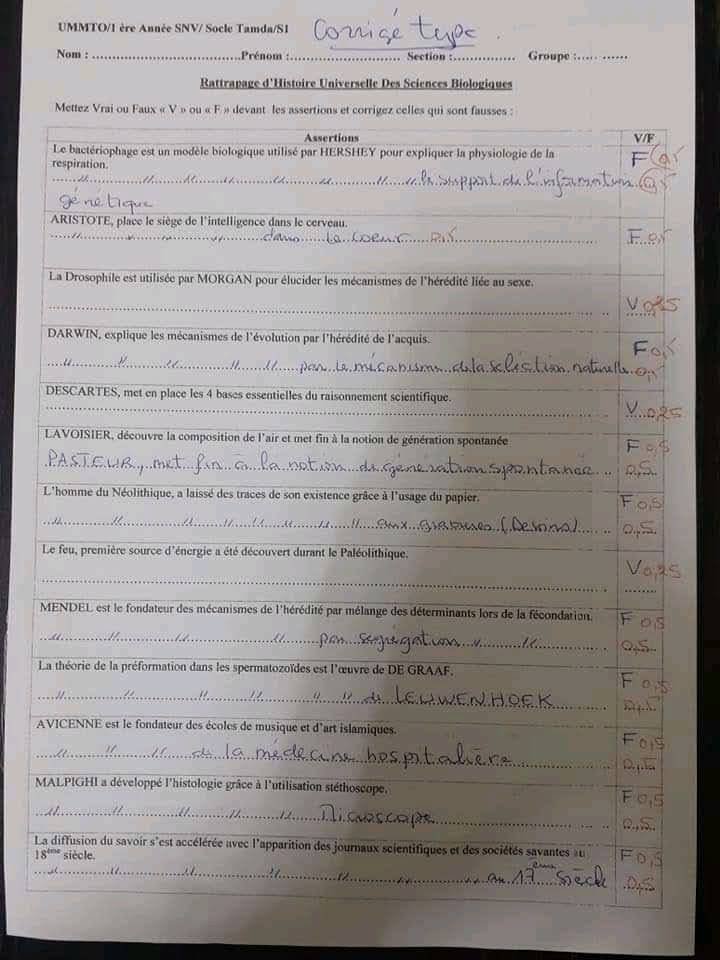 UMMTO/1 ère Année SNV/ Socle Tamda/S1 Corrigé type.
Nom : .......................................Prénom :.............................. Section :............... Groupe :..... ......
Rattrapage d'Histoire Universelle Des Sciences Biologiques
Mettez Vrai ou Faux « V » ou « F » devant les assertions et corrigez celles qui sont fausses :
Assertions V/F
Le bactériophage est un modèle biologique utilisé par HERSHEY pour expliquer la physiologie de la F 0,5
respiration.
" " " " " " " " le support de l'information 0,5
génétique
ARISTOTE, place le siège de l'intelligence dans le cerveau.
" " " " " dans le coeur 0,5 F 0,5
La Drosophile est utilisée par MORGAN pour élucider les mécanismes de l'hérédité liée au sexe.
V 0,25
DARWIN, explique les mécanismes de l'évolution par l'hérédité de l'acquis. F 0,5
" " " " " par le mécanisme de la sélection naturelle 0,5
DESCARTES, met en place les 4 bases essentielles du raisonnement scientifique.
V 0,25
LAVOISIER, découvre la composition de l'air et met fin à la notion de génération spontanée F 0,5
PASTEUR, met fin à la notion de génération spontanée 0,5
L'homme du Néolithique, a laissé des traces de son existence grâce à l'usage du papier. F 0,5
" " " " " " " " " aux gravures (Dessins) 0,5
Le feu, première source d'énergie a été découvert durant le Paléolithique. V 0,25
MENDEL est le fondateur des mécanismes de l'hérédité par mélange des déterminants lors de la fécondation. F 0,5
" " " " " par ségrégation " " 0,5
La théorie de la préformation dans les spermatozoïdes est l'œuvre de DE GRAAF. F 0,5
" " " " " " de LEUWENHOEK 0,5
AVICENNE est le fondateur des écoles de musique et d'art islamiques. F 0,5
" " " de la médecine hospitalière 0,5
MALPIGHI a développé l'histologie grâce à l'utilisation stéthoscope. F 0,5
" " " " " " Microscope 0,5
La diffusion du savoir s'est accélérée avec l'apparition des journaux scientifiques et des sociétés savantes au F 0,5
18ème siècle.
" " " " " " " au 17ème siècle 0,5